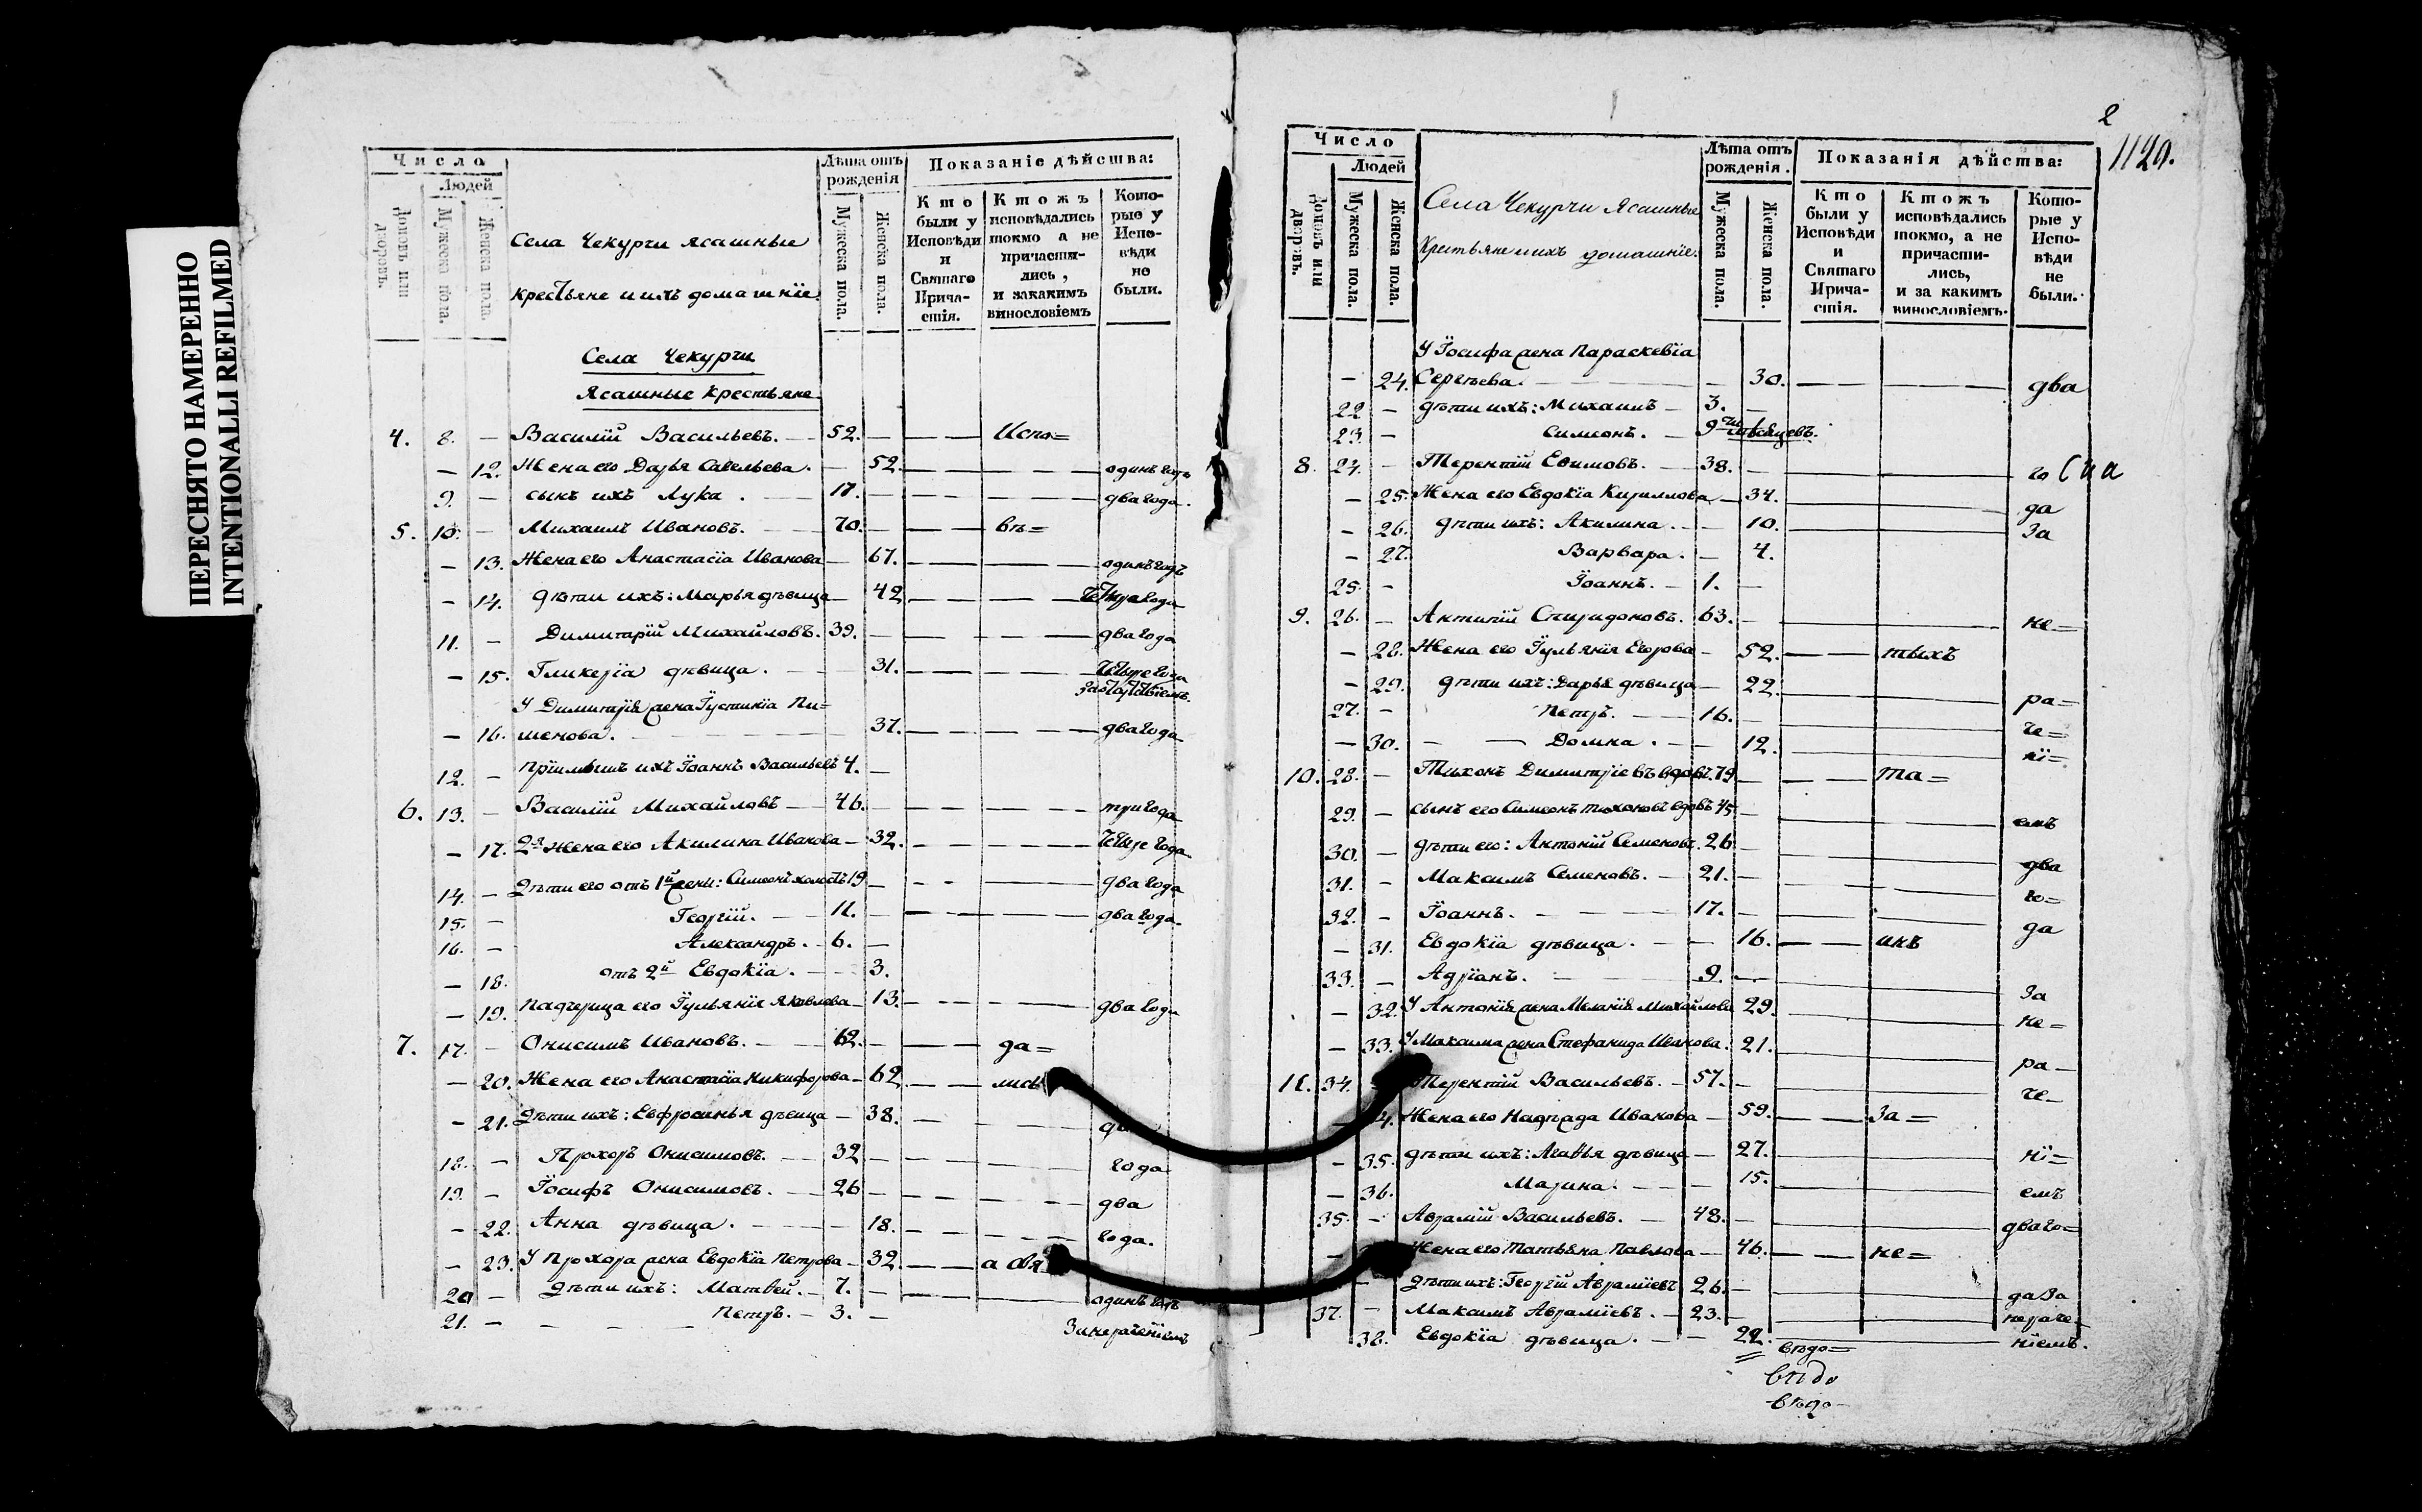 ПЕРЕСНЯТО НАМЕРЕННО
INTENTIONALLI REFILMED
Число
Людей
Домовъ или дворовъ.
Мужеска пола.
Женска пола.
Села Чекурчи ясашные
крестьяне и ихъ домашнїе.
Лѣта отъ рожденія
Мужеска пола.
Женска пола.
Показаніе дѣйства:
Кто были у Исповѣди и Святаго Причастія.
Ктожъ исповѣдались токмо а не причастились, и закакимъ винословіемъ
Которые у Исповѣди не были.
Села Чекурчи
Ясашные крестьяне.
4. 8. – Василїй Васильевъ. – 52. – Испо=
– 12. Жена его Дарья Савельева. – 52. – одинъ годъ
9. – сынъ ихъ Лука. – 17. – два года.
5. 10. – Михаилъ Ивановъ. – 70. – вѣ=
– 13. Жена его Анастасїа Иванова – 67. – одинъ годъ
– 14. дѣти ихъ: Марья дѣвица – 42 – четыре года
11. – Димитрїй Михайловъ. 39. – два года
– 15. Гликерїа дѣвица. – 31. – четыре года
У Димитрїя жена Їустинїа Пи=
– 16. менова. – 37. – два года
12. – прїимышъ ихъ Їоаннъ Васильевъ 4. –
6. 13. – Василїй Михайловъ – 46. – три года
– 17. 2я жена его Акилина Иванова – 32. – четыре года
14. – Дѣти его отъ 1й жены: Симеонъ холостъ 19 – два года
15. – Георгїй. – 11. – два года.
16. – Александръ. – 6. –
– 18. отъ 2й Евдокїа. – 3.
– 19. Падчерица его Їульянїя Яковлева – 13. – два года
7. 17. – Онисимъ Ивановъ. – 62. – да=
– 20. Жена его Анастасїа Никифорова – 62 – лись
– 21. Дѣти ихъ: Евфросинья дѣвица – 38. – два
18. – Прохоръ Онисимовъ. – 32 – года
19. – Їосифъ Онисимовъ. – 26 – два
– 22. Анна дѣвица. – 18. – года.
– 23. У Прохора жена Евдокїа Петрова – 32. – а свя
20 – Дѣти ихъ: Матвей. – 7. – одинъ годъ
21. – Петръ. – 3. – За нераченїемъ
2
1120.
Число
Людей
Домовъ или дворовъ.
Мужеска пола.
Женска пола.
Села Чекурчи Ясашные
Крестьяне и ихъ домашнїе.
Лѣта отъ рожденія.
Мужеска пола.
Женска пола.
Показанія дѣйства:
Кто были у Исповѣди и Святаго Причастія.
Ктожъ исповѣдались токмо, а не причастились, и за какимъ винословіемъ.
Которые у Исповѣди не были.
У Їосифа жена Параскевїа
– 24. Сергѣева. – 30. – два
22 – дѣти ихъ: Михаилъ – 3. –
23. – Симеонъ. – 9ти мѣсяцевъ.
8. 24. – Терентїй Ефимовъ. – 38. – го
– 25. Жена его Евдокїа Кириллова – 34. – да
– 26. дѣти ихъ: Акилина. – 10. – За
– 27. Варвара. – 4.
25. – Їоаннъ. – 1. –
9. 26. – Антипїй Спиридоновъ. 63. – не=
– 28. Жена его Їульянїя Егорова – 52. – тыхъ
– 29. дѣти ихъ: Дарья дѣвица – 22. – ра=
27. – Петръ. – 16. – че=
– 30. – Домна. – 12. – нї=
10. 28. – Тихонъ Димитрїевъ вдовъ. 79 – та=
29. – сынъ его Симеонъ Тихоновъ вдовъ 45 – емъ
30. – Дѣти его: Антонїй Семеновъ. 26 – два
31. – Максимъ Семеновъ. – 21. – го=
32. – Їоаннъ. – 17. – да
– 31. Евдокїа дѣвица. – 16. – инъ
33. – Адрїанъ. – 9. –
– 32. У Антонїя жена Меланїя Михайлова 29. – За не=
– 33. У Максима жена Стефанида Иванова. 21. – ра–
11. 34. Терентїй Васильевъ. – 57. – че–
– 34. Жена его Надежда Иванова – 59. – За=
– 35. дѣти ихъ: Агафья дѣвица – 27. – нї=
– 36. Марина. – 15. – емъ
35. – Аврамїй Васильевъ. – 48. – два го=
– Жена его Татьяна Павлова – 46. – не=
– Дѣти ихъ: Георгїй Аврамїевъ 26. – да За
37. – Максимъ Аврамїевъ. – 23. – нераче–
38. Евдокїа дѣвица. – 22. – нїемъ.
вѣдо=
вѣдо
вѣдо–